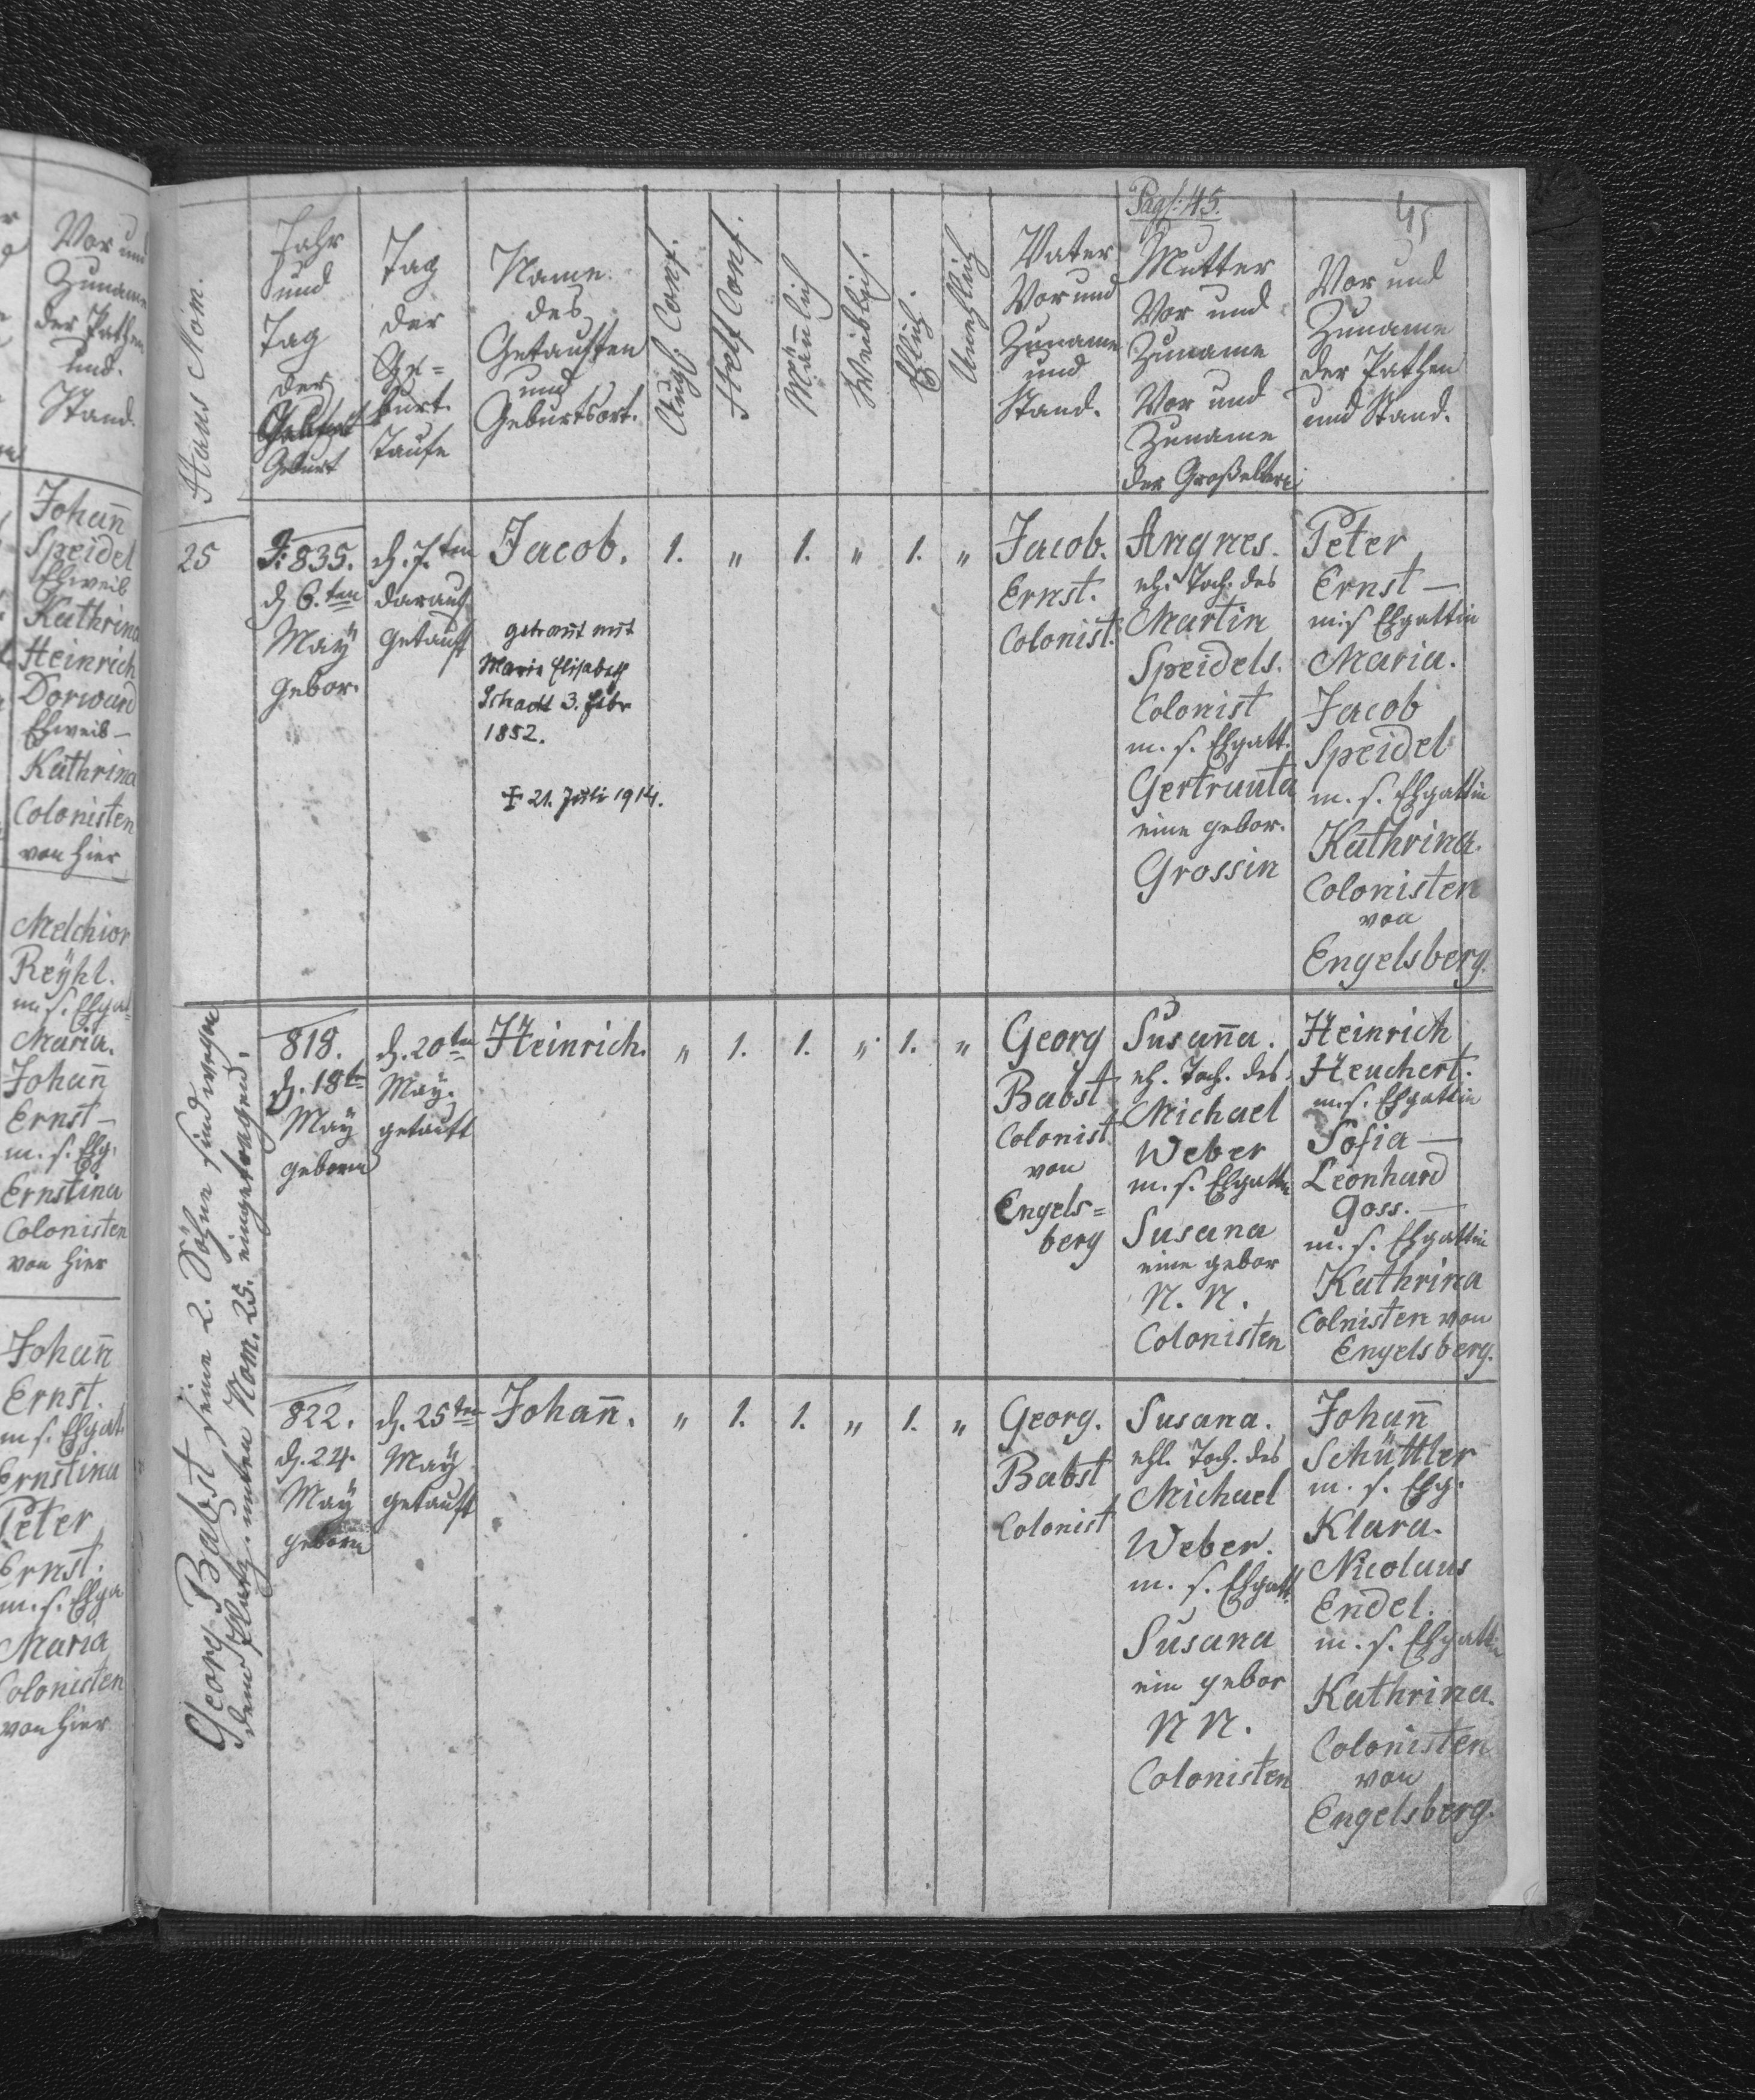 Vor und
Zuname
der Pathen
und.
Stand.
Johan̄
Speidel
Ehweib
Kathrina
Heinrich
Dorward
Ehweib —
Kathrina
Colonisten
von hier
Melchior
Reÿhl.
m. s. Ehgat=
Maria.
Johan̄
Ernst —
m. s. Ehg.
Ernstina
Colonisten
von hier
Johan̄
Ernst.
m s. Ehgat.
Ernstina
Peter
Ernst.
m. s. Ehga
Maria
Colonisten
von hier
Pag: 45.
45
Haus Nom.
Jahr
und
Tag
der
Geburt
Tag
der
Ge=
burt.
Taufe
Name
des
Getauften
und
Geburtsort.
Augs. Conf.
Helf. Conf.
Män̄lich
Weiblich.
Ehlich.
Unehlich
Vater
Vor und
Zuname
und
Stand.
Mutter
Vor und
Zuname
Vor und
Zuname
der Großeltern
Vor und
Zuname
der Pathen
und Stand.
25
835.
d. 6.ten
Maÿ
gebor.
d. 7.ten
darauf
getauft
Jacob.
getraut mit
Maria Elisabeth
Schadt 3. Febr
1852.
† 21. Juli 1914.
1. " 1. " 1. "
Jacob.
Ernst.
Colonist.
Angnes.
eh. Toch. des
Martin
Speidels.
Colonist
m. s. Ehgatt.
Gertrunta
eine gebor.
Grossin
Peter
Ernst —
m s Ehgattin
Maria.
Jacob
Speidel
m. s. Ehgattin
Kathrina.
Colonisten
von
Engelsberg.
Georg Babst seine 2. Söhne sind wegen
dem Platz. unten Nom. 25. eingetragen.
818.
d. 18t
Maÿ
geboren
d. 20ten
Maÿ.
getauft
Heinrich.
" 1. 1. " 1. "
Georg
Babst
Colonist
von
Engels=
berg
Susan̄a.
eh. Toch. des
Michael
Weber
m. s. Ehgattin
Susana
eine gebor
N. N.
Colonisten
Heinrich
Heuchert.
m. s. Ehgattin
Sofia —
Leonhard
Goss. —
m. s. Ehgattin
Kathrina
Colnisten von
Engelsberg.
822.
d. 24.
Maÿ
geboren
d. 25ten
Maÿ
getauft
Johan̄.
" 1. 1. " 1. "
Georg.
Babst
Colonist
Susana.
ehl. Toch. des
Michael
Weber.
m. s. Ehgatt.
Susana
ein gebor
N N.
Colonisten
Johan̄
Schüttler
m. s. Ehg.
Klara.
Nicolaus
Endel.
m. s. Ehgattin
Kathrina.
Colonisten
von
Engelsberg.